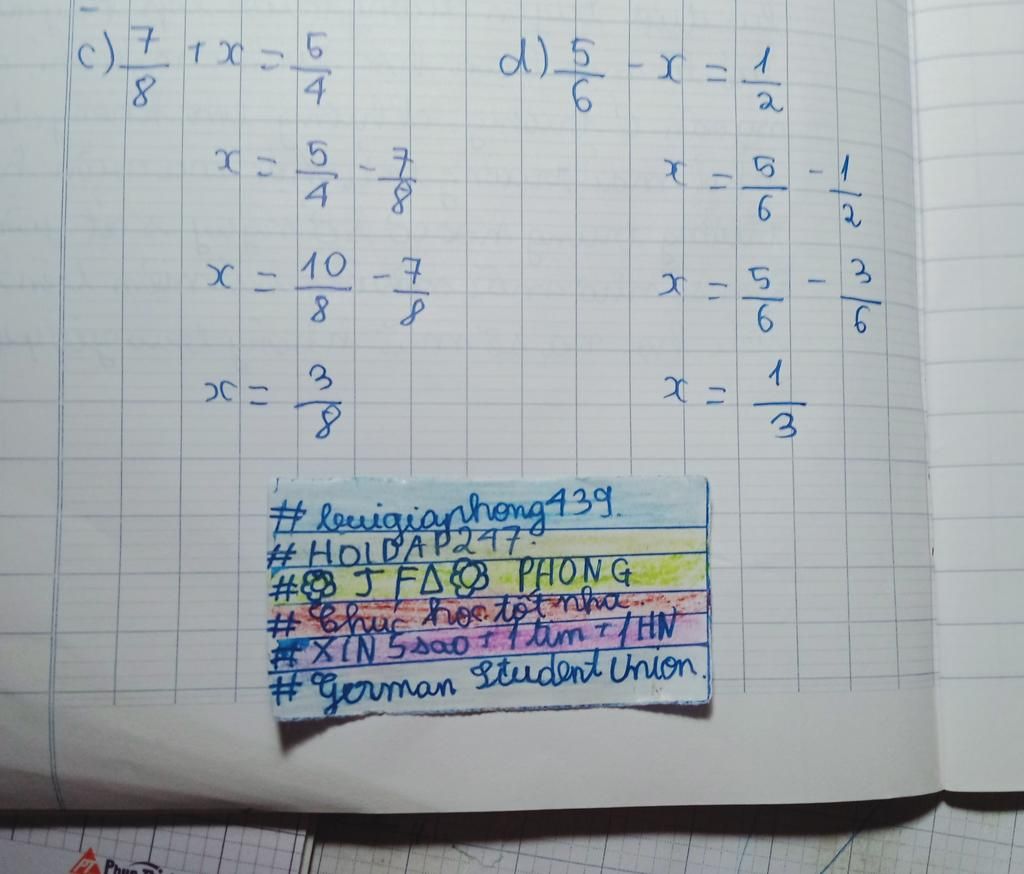 c) 7/8 + x = 5/4
x = 5/4 - 7/8
x = 10/8 - 7/8
x = 3/8
d) 5/6 - x = 1/2
x = 5/6 - 1/2
x = 5/6 - 3/6
x = 1/3
# buigiaphong439.
# HOIDAP247.
# J F Δ PHONG
# Chúc học tốt nha.
# XIN 5 sao + 1 tim + 1 HN
# German Student Union.